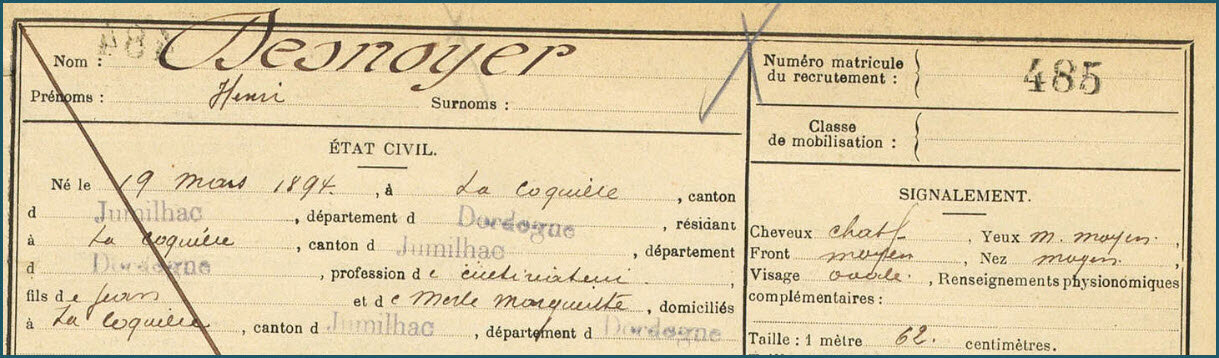 484
Nom : Desnoyer
Prénoms : Henri Surnoms :
ÉTAT CIVIL.
Né le 19 mars 1894. , à La Coquille , canton
d Jumilhac , département d Dordogne , résidant
à La Coquille , canton d Jumilhac , département
d Dordogne , profession de cultivateur ,
fils de Jean et de Merle Marguerite , domiciliés
à La Coquille , canton d Jumilhac , département d Dordogne
Numéro matricule
du recrutement : 485
Classe
de mobilisation :
SIGNALEMENT.
Cheveux chat , Yeux m. moyen. ,
Front moyen , Nez moyen .
Visage ovale. , Renseignements physionomiques
complémentaires :
Taille : 1 mètre 62. centimètres.